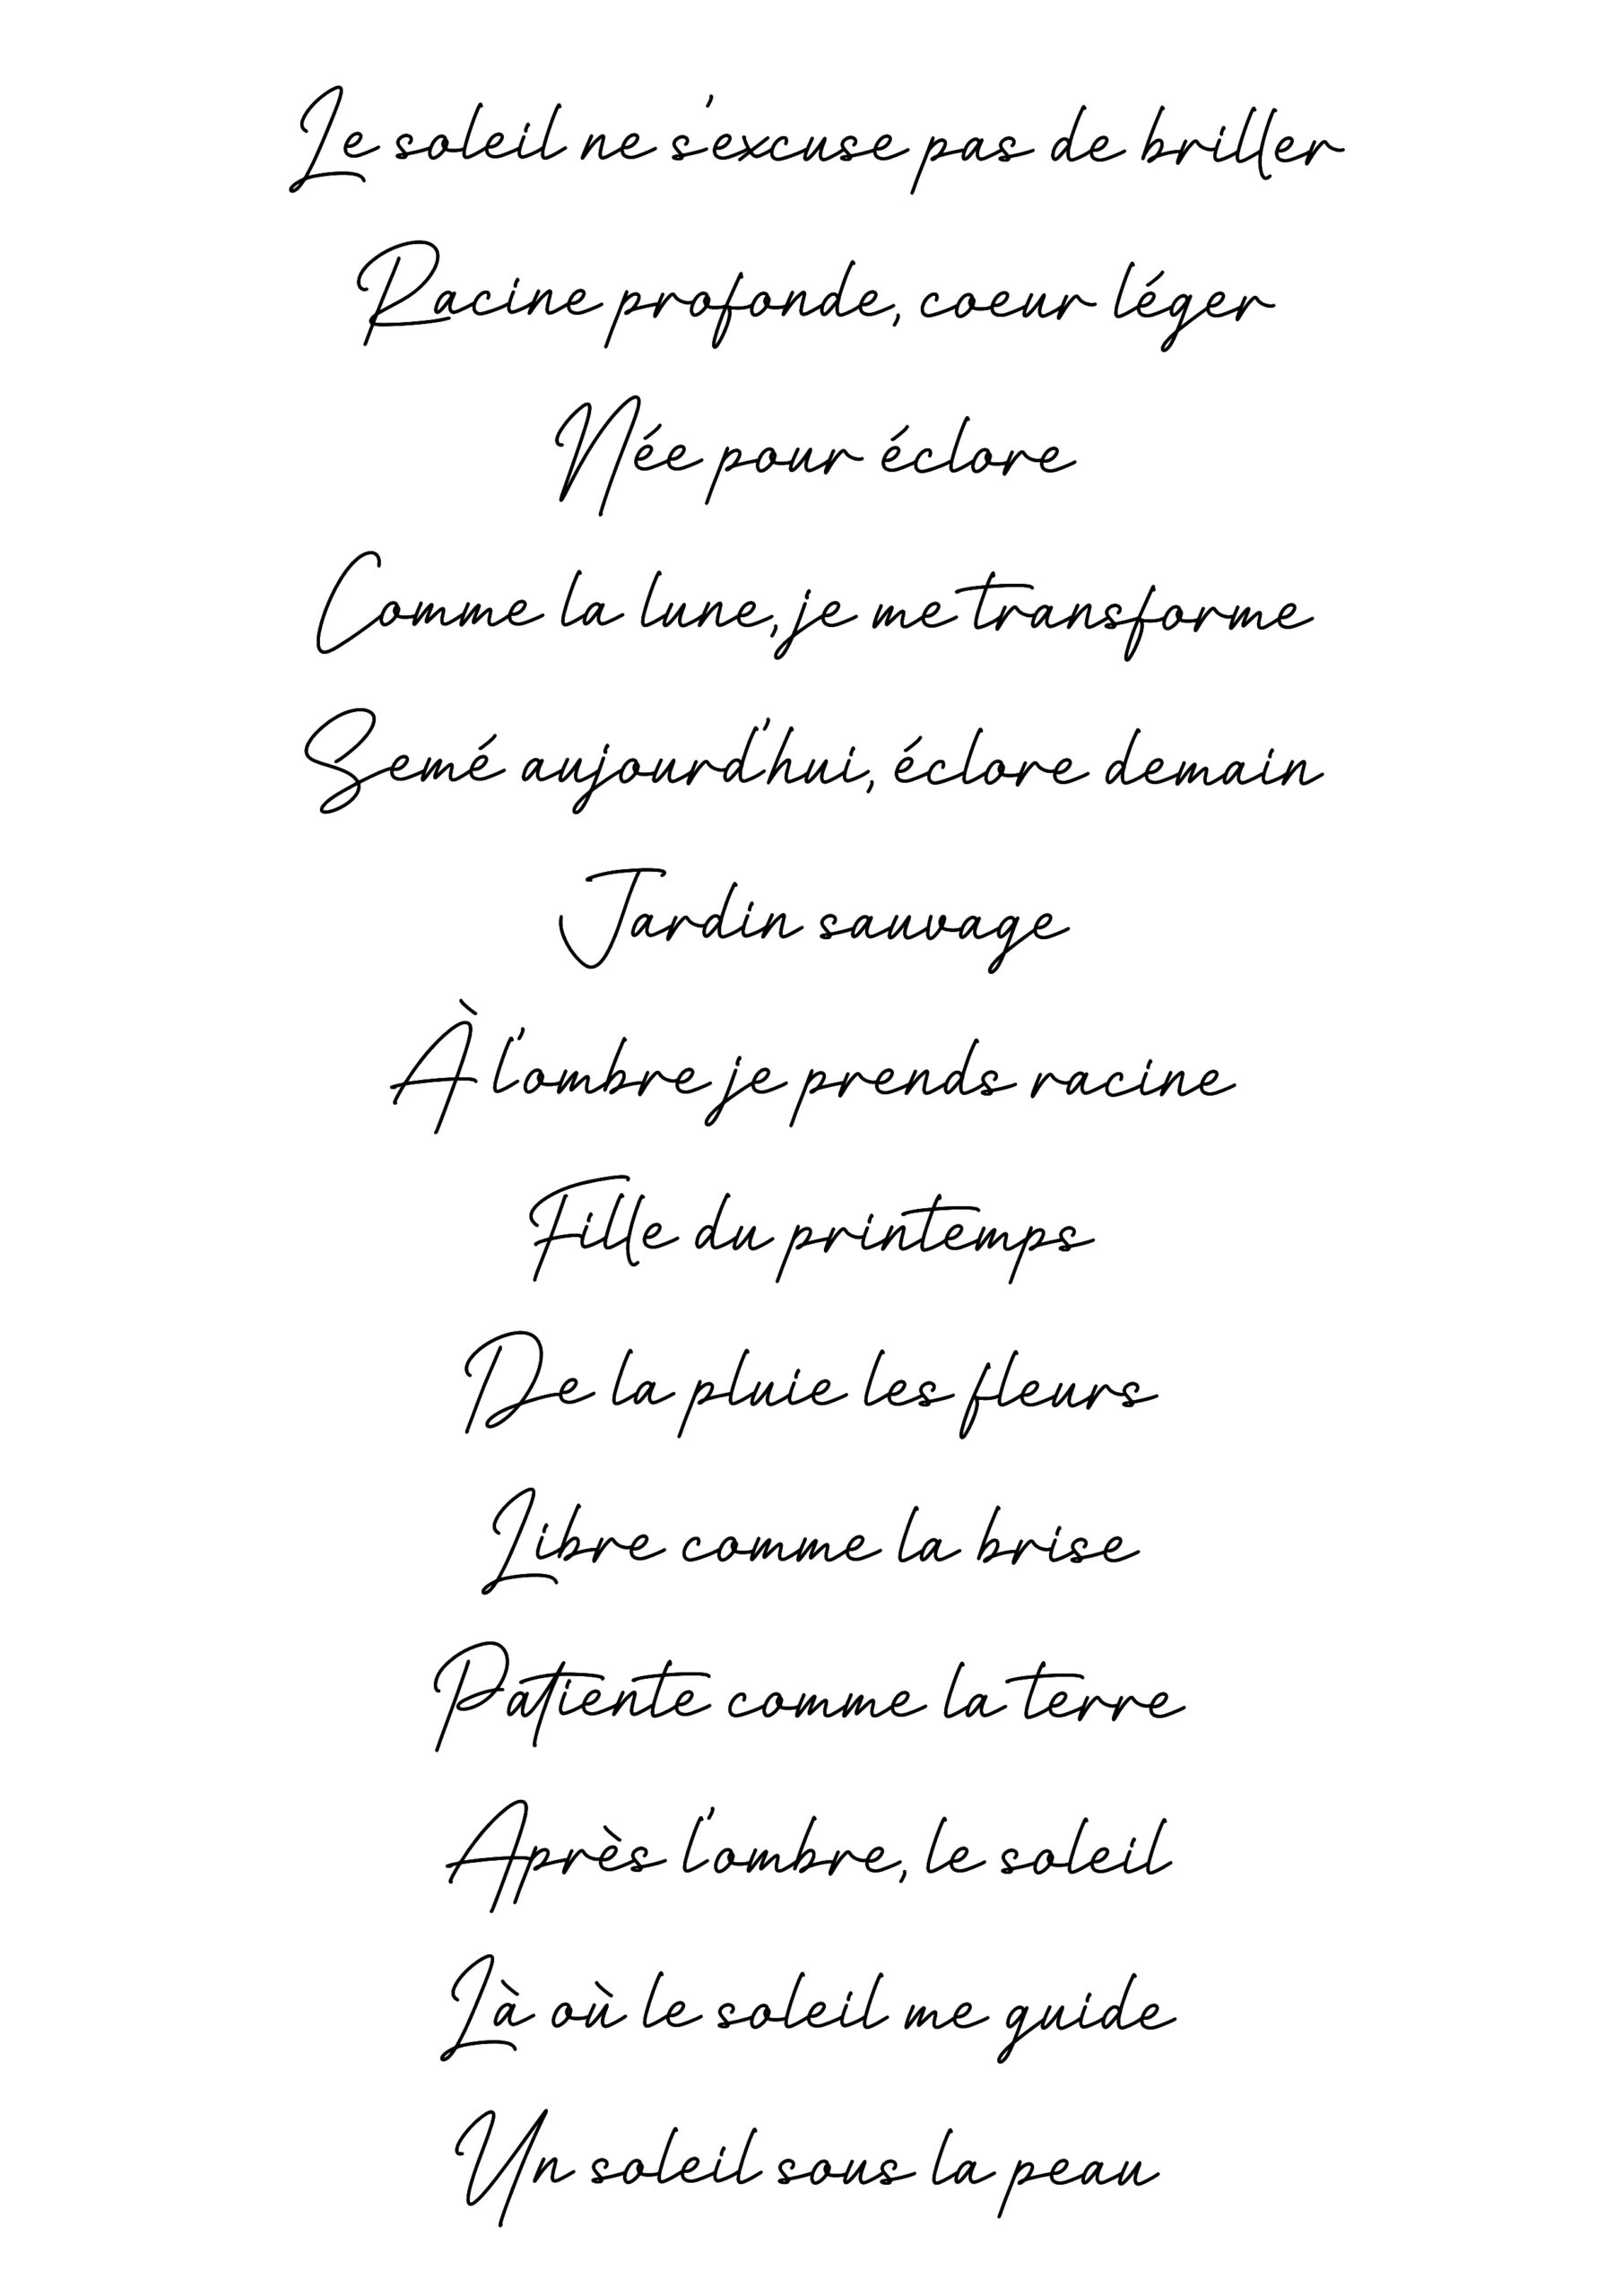 Le soleil ne s'excuse pas de briller
Racine profonde, coeur léger
Née pour éclore
Comme la lune, je me transforme
Semé aujourd'hui, éclore demain
Jardin sauvage
À l'ombre je prends racine
Fille du printemps
De la pluie les fleurs
Libre comme la brise
Patiente comme la terre
Après l'ombre, le soleil
Là où le soleil me guide
Un soleil sous la peau